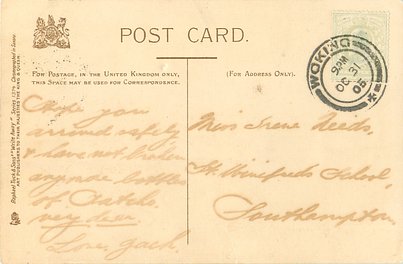 POST CARD.
For Postage, in the United Kingdom only,
this Space may be used for Correspondence.
(For Address Only).
WOKING
9 PM
OC 31
05
Raphael Tuck & Sons' "Write Away"
ART PUBLISHERS TO THEIR MAJESTIES THE KING & QUEEN
Hope you
arrived safely
& have not broken
any more bottles
of
very dear
Love, Jack.
Miss Irene Leeds,
St. Winifreds School
Southampton